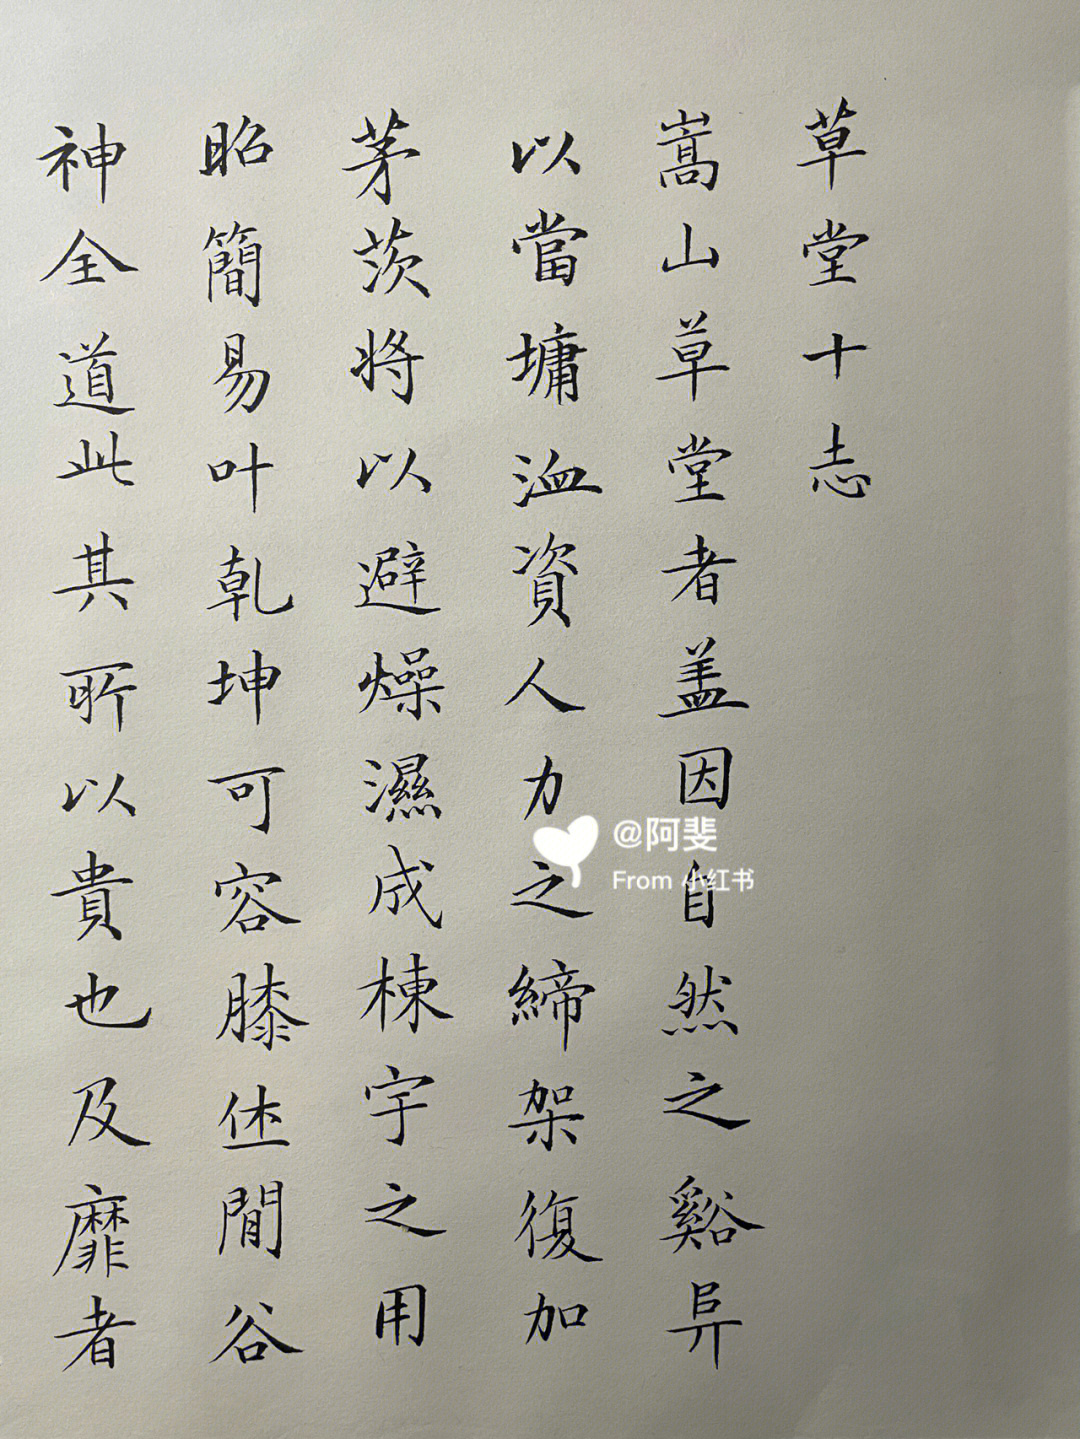 草堂十志
嵩山草堂者盖因自然之谿㠯
以當墉洫資人力之締架復加
茅茨将以避燥濕成棟宇之用
昭簡易叶乾坤可容膝休閒谷
神全道此其所以貴也及靡者
@阿斐
From 小红书